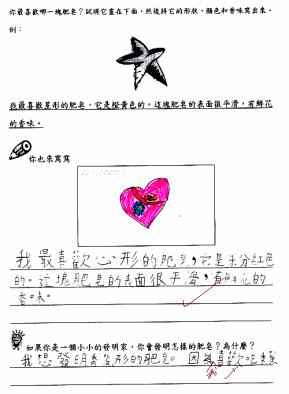 你最喜歡哪一塊肥皂？試將它畫在下面，然後將它的形狀、顏色和香味寫出來。
例：
我最喜歡星形的肥皂，它是橙黃色的。這塊肥皂的表面很平滑，有鮮花
的香味。
你也來寫寫
我最喜歡心形的肥皂，它是粉紅色
的。這塊肥皂的表面很平滑，有鮮花的
香味。
如果你是一個小小的發明家，你會發明怎樣的肥皂？為什麼？
我想發明香蕉形的肥皂。因為喜歡吃香蕉
我